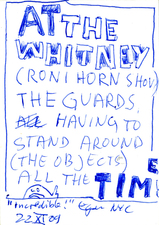 AT THE
WHITNEY
(RONI HORN SHOW)
THE GUARDS,
HAVING TO
STAND AROUND
(THE OBJECTS)
ALL THE TIME
"incredible!" NYC
22 XI 09